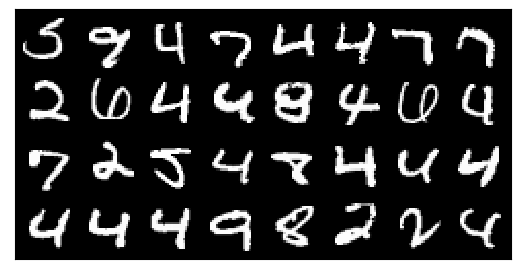 5 9 4 7 4 4 7 7
2 6 4 4 8 4 6 4
7 2 5 4 8 4 4 4
4 4 4 9 8 2 2 4